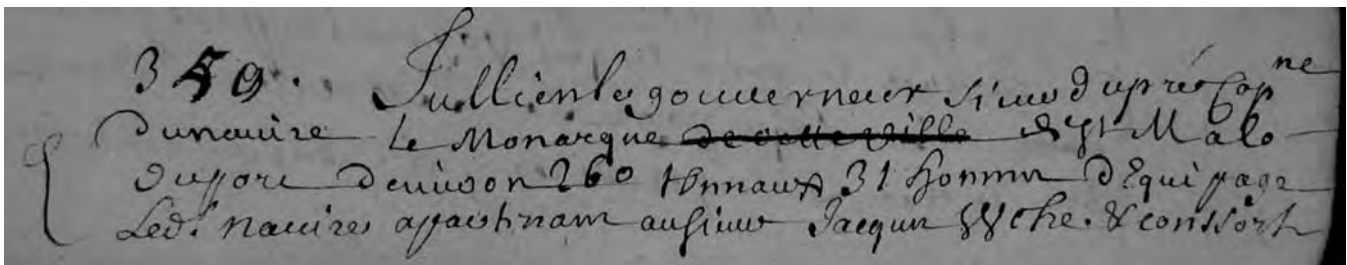 359. Jullien le gouverneur sieur dupré Capne
du navire Le Monarque de cette ville de St Malo
du port denviron 260 thonnaux 31 hommes dEquipage
Led. navire appartenant au sieur Jacques & conssorts